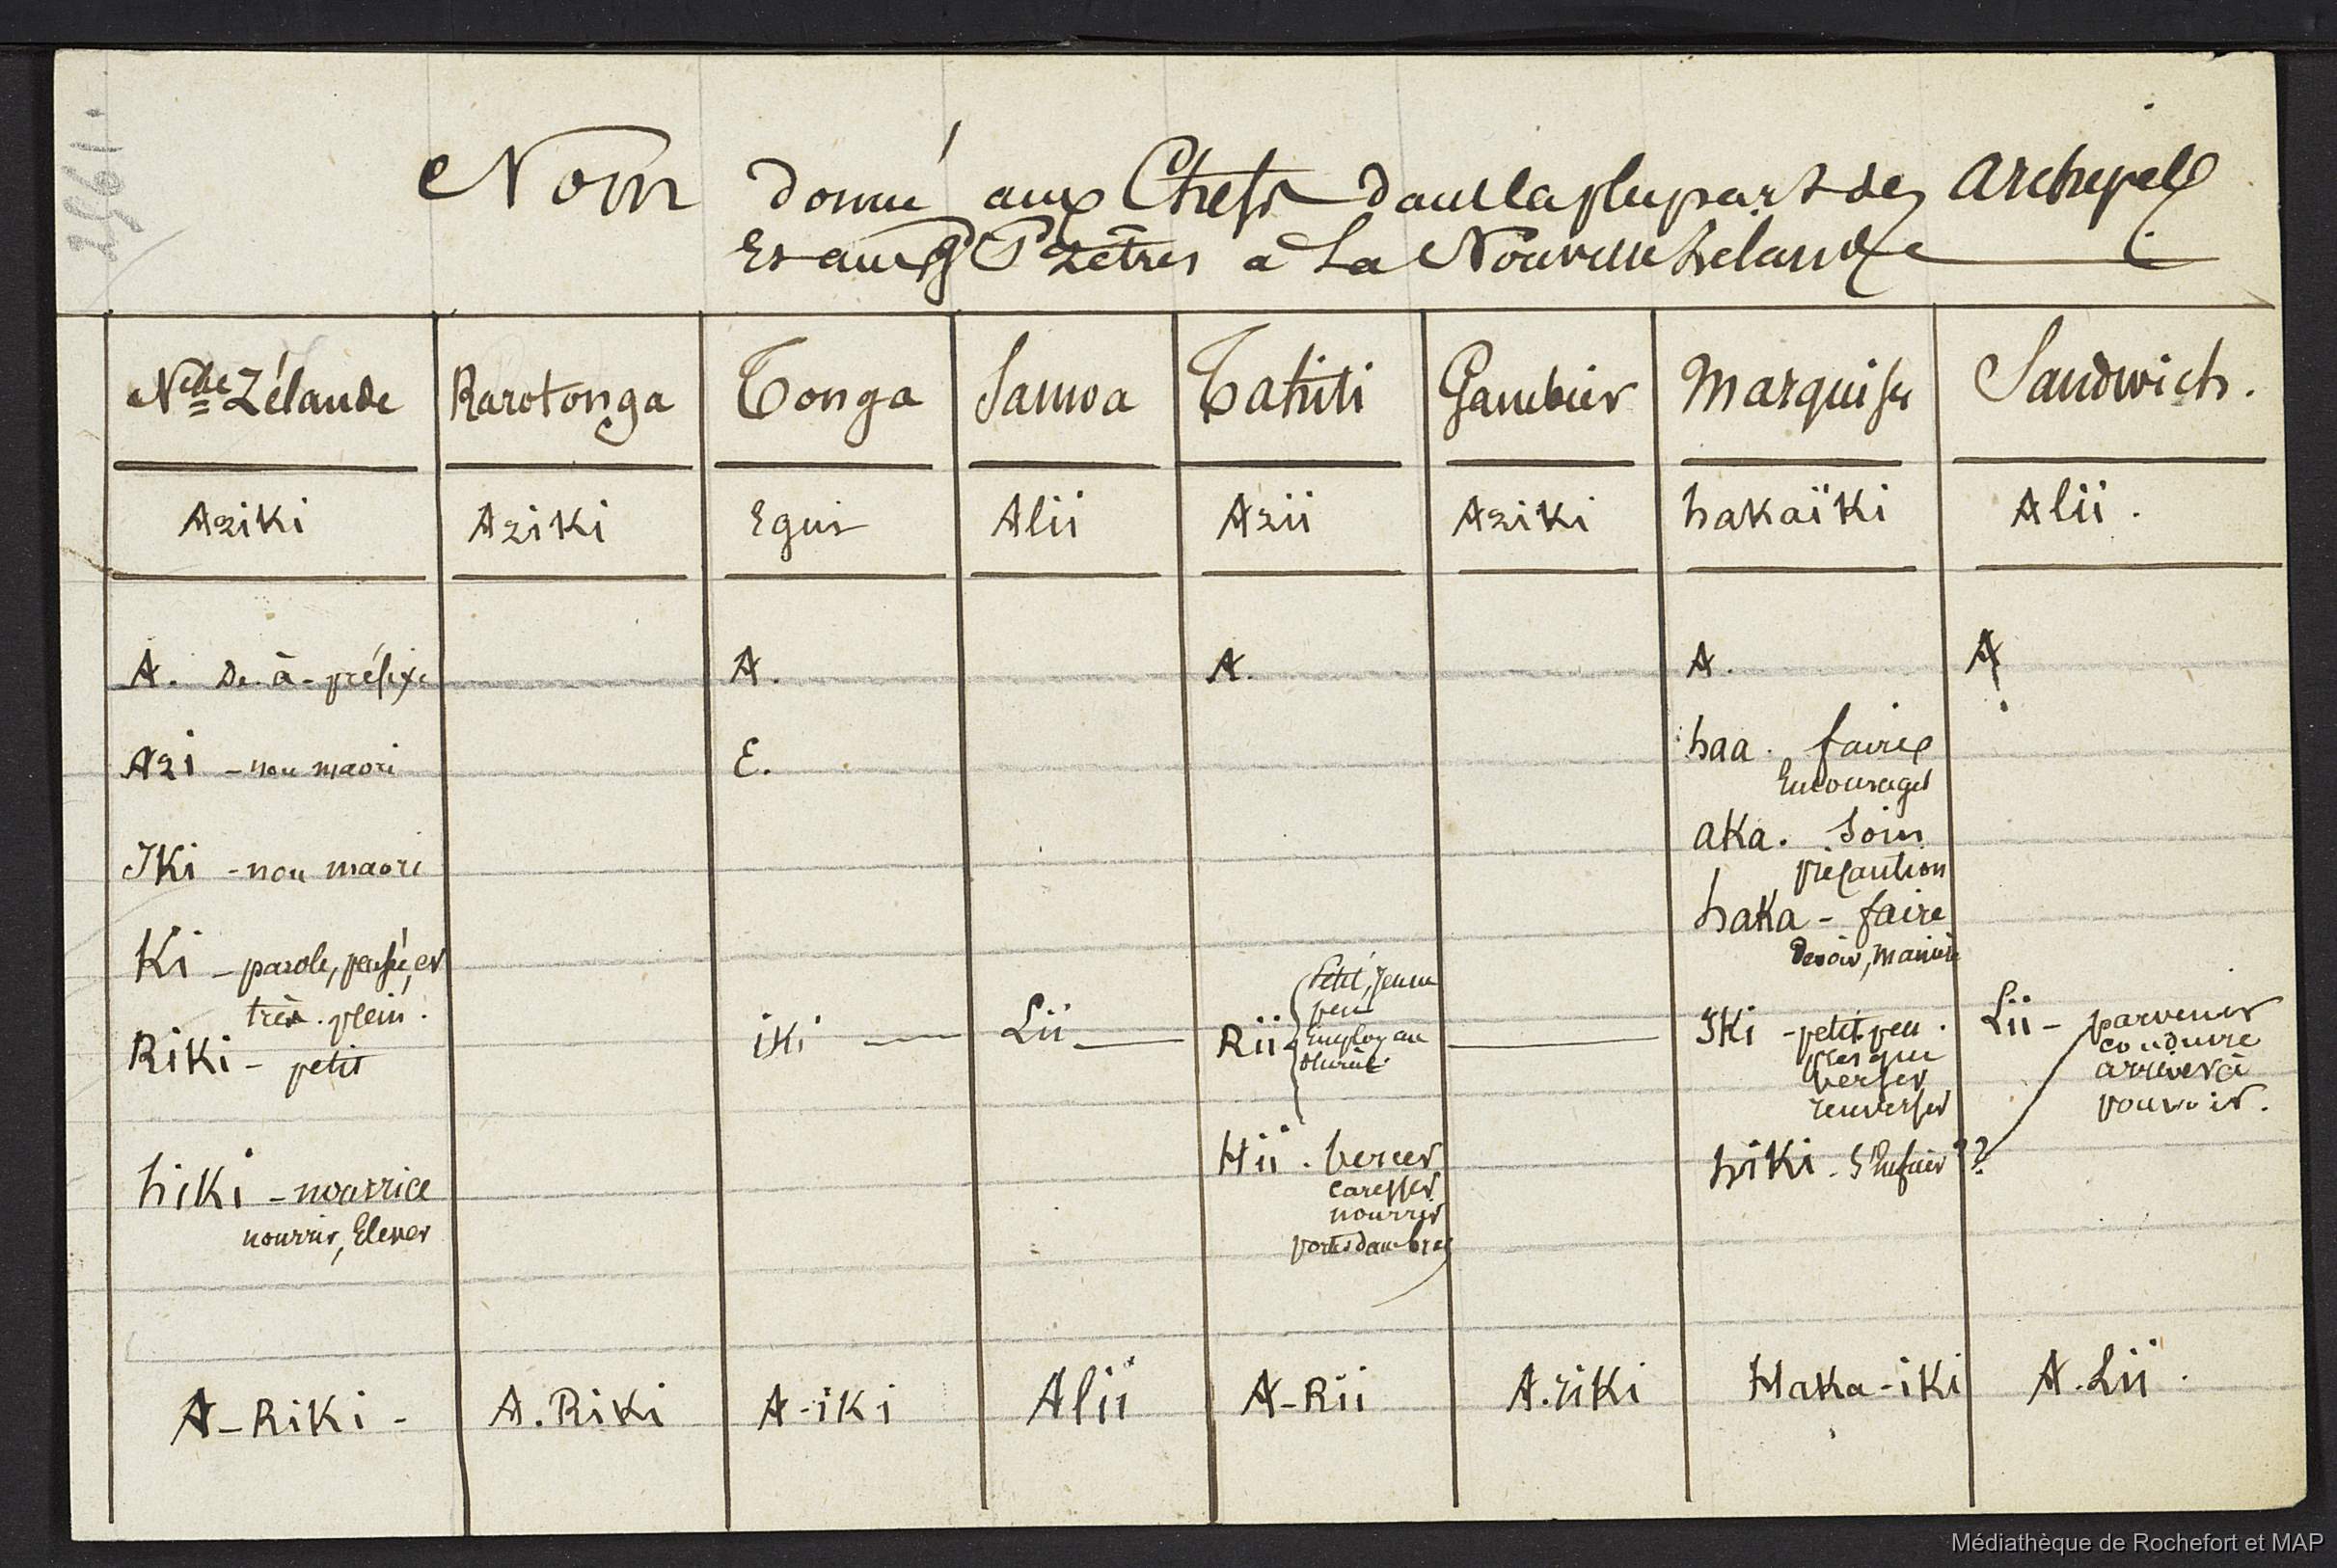 2561.
Nom donné aux Chefs dans la plupart des Archipels
Et aux Prêtres à La Nouvelle Zélande
Nlle Zélande Rarotonga Tonga Samoa Tahiti Gambier Marquises Sandwich.
Ariki Ariki Egui Alii Arii Ariki hakaïki Alii.
A. De-à-préfixe A. A. A. A
Ari - non maori E. haa. faire
Encourager
Iki - non maori aka. Soin
précaution
haka - faire
Devoir, manière
Ki - parole, pensée, et
très. plein.
Riki - petit iki Lii Rii Petit, Jeune
peu
Employ au
pluriel
Iki - petit, peu.
presque
verser
renverser
Lii - parvenir
conduire
arriver à
pouvoir.
hiki - nourrice
nourrir, Elever
Hii. bercer
caresser
nourrir
porter dans bras
hiki. S'enfuir ??
A-Riki - A. Riki A-iki Alii A-Rii A.riki Haka-iki A.Lii.
Médiathèque de Rochefort et MAP